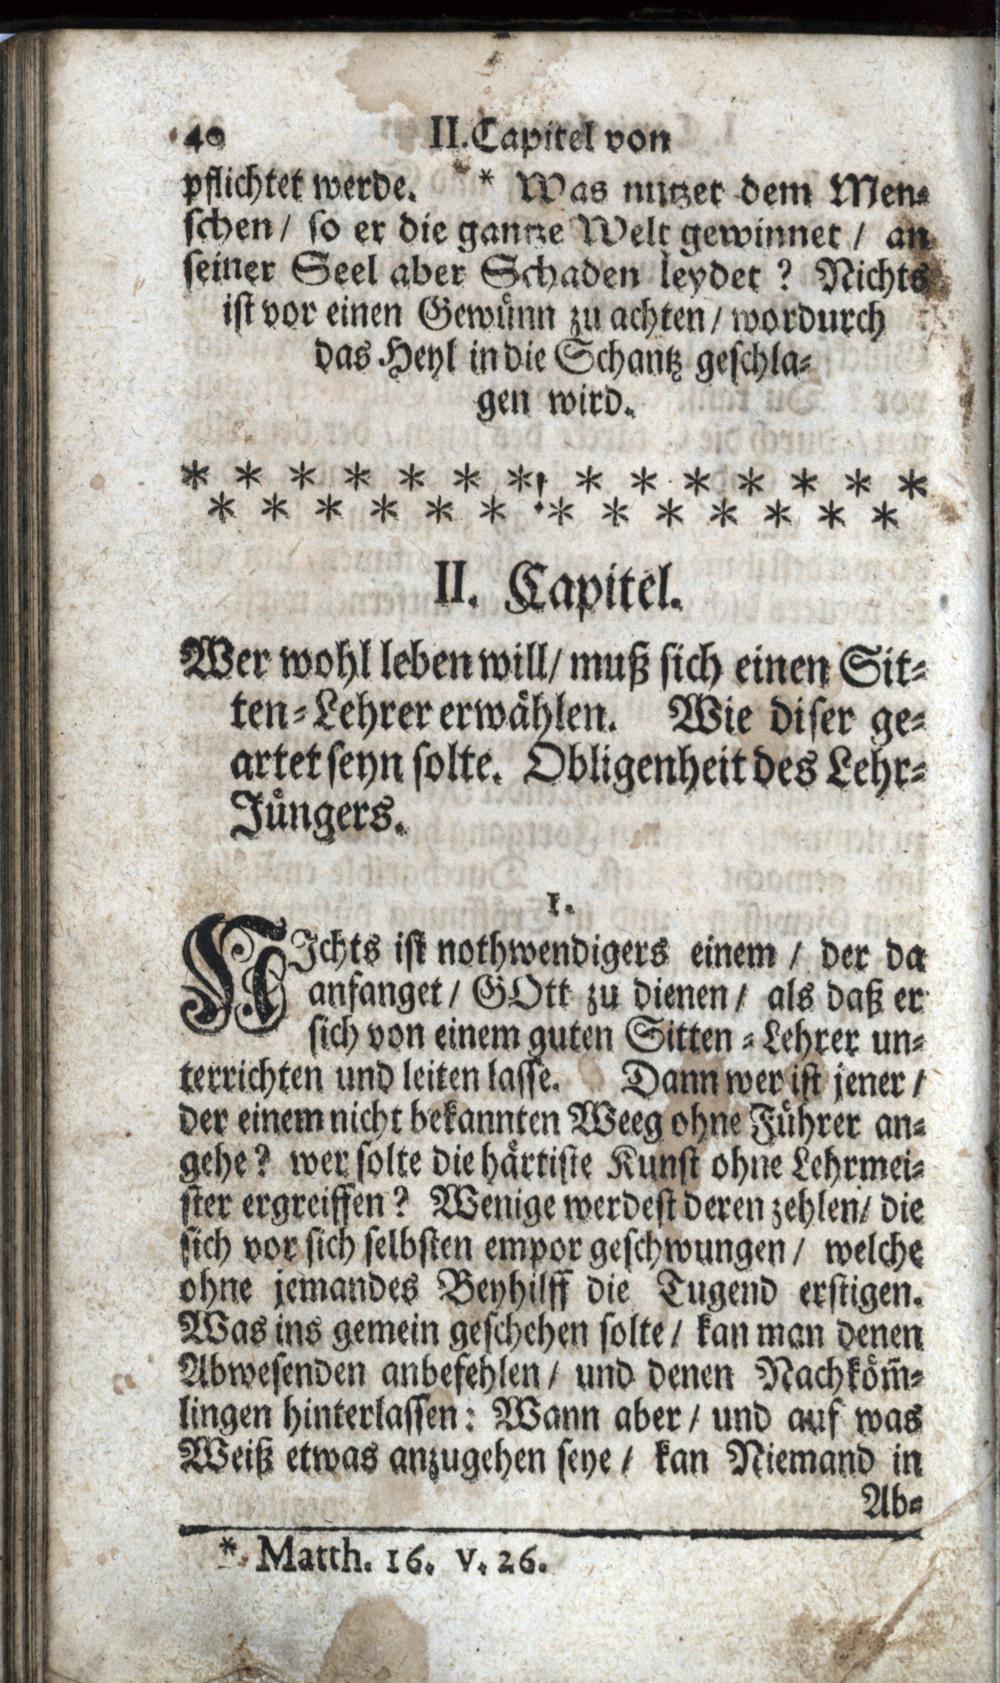 40 II. Capitel von
pflichtet werde. * Was nutzet dem Men-
schen / so er die gantze Welt gewinnet / an
seiner Seel aber Schaden leydet ? Nichts
ist vor einen Gewünn zu achten / wordurch
das Heyl in die Schantz geschla-
gen wird.
* * * * * * * ! * * * * * * *
* * * * * * * * * * * * *
II. Capitel.
Wer wohl leben will / muß sich einen Sit-
ten-Lehrer erwählen. Wie diser ge-
artet seyn solte. Obligenheit des Lehr-
Jüngers.
1.
NIchts ist nothwendigers einem / der da
anfanget / GOtt zu dienen / als daß er
sich von einem guten Sitten-Lehrer un-
terrichten und leiten lasse. Dann wer ist jener /
der einem nicht bekannten Weeg ohne Führer an-
gehe ? wer solte die härtiste Kunst ohne Lehrmei-
ster ergreiffen ? Wenige werdest deren zehlen / die
sich vor sich selbsten empor geschwungen / welche
ohne jemandes Beyhilff die Tugend erstigen.
Was ins gemein geschehen solte / kan man denen
Abwesenden anbefehlen / und denen Nachköm̄-
lingen hinterlassen : Wann aber / und auf was
Weiß etwas anzugehen seye / kan Niemand in
Ab-
* Matth. 16. v. 26.